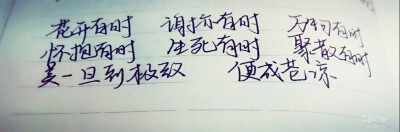 花开有时 谢亦有时 万物有时
怀抱有时 生死有时 聚散有时
美一旦到极致 便成苍凉